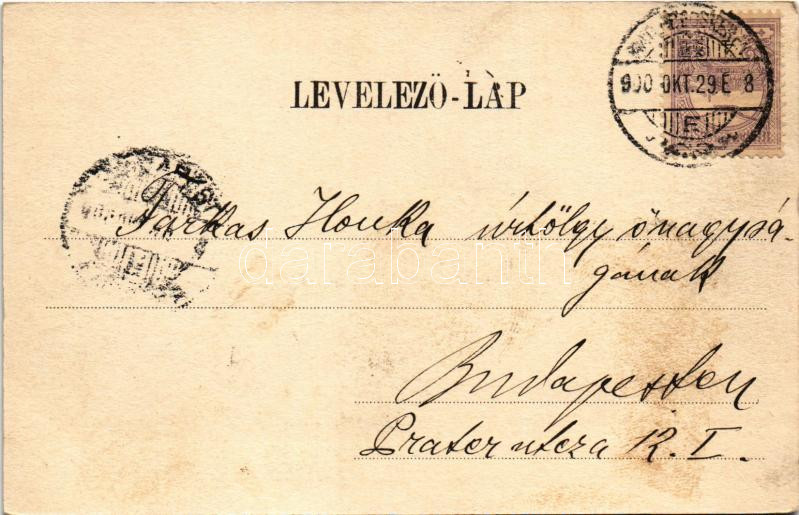 LEVELEZŐ-LAP
900 OKT. 29 E 8
Farkas Ilonka úrhölgy őnagysá-
gának
darabanth
Budapesten
Prater utcza 12. I.